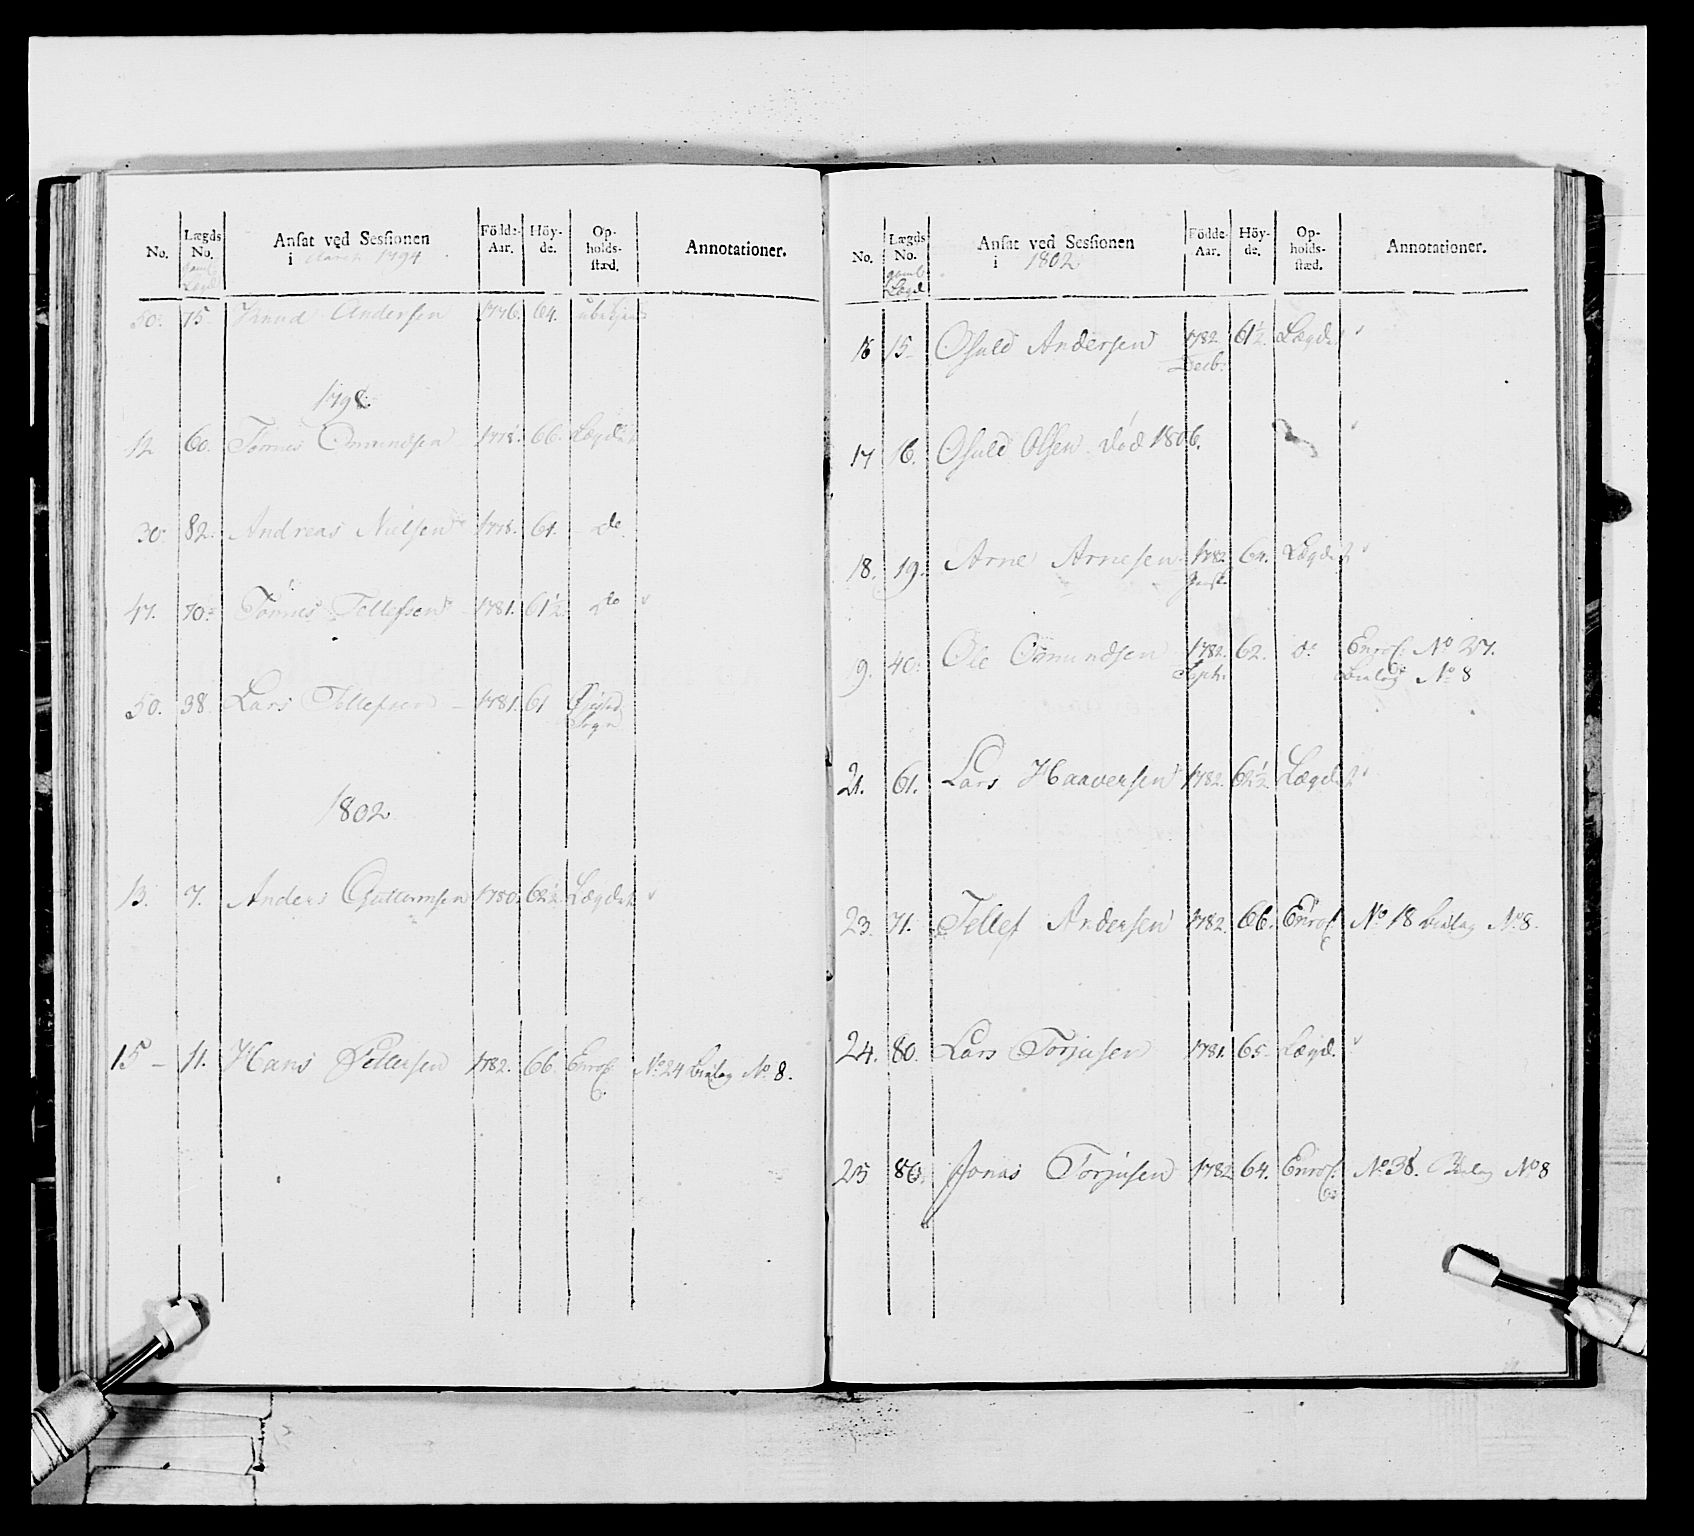 No. Lægds No. Ansat ved Sessionen i 1794 Födde-Aar. Höy-de. Op-holds-stæd. Annotationer.
50. 75 Knud Andersen 1776. 64. ubekjendt
1798.
12 60. Tönnes Omundsen 1778. 66. Lægdet
30. 82. Andreas Nielsen 1778. 61. do
47. 70. Tönnes Tellefsen 1781. 61½ do
50. 38. Lars Tellefsen 1781. 61
Sogn
1802
13. 7. Anders Guttormsen 1780. 62½ Lægdet
15 – 11. Hans Pettersen 1782. 66. Enrol. No 24 Bilag No. 8.
No. Lægds No. gaml. Lægd Ansat ved Sessionen i 1802 Födde-Aar. Höy-de. Op-holds-stæd. Annotationer.
16 15 Osuld Andersen 1782 61½ Lægdet
Decb.
17 16. Osuld Olsen död 1806.
18. 19. Arne Arnesen 1782 64. Lægdet
19. 40. Ole Omundsen 1782. 62. do Enrol. No 27.
Septb. Bilag No 8
21. 61. Lars Haaversen 1782. 62½ Lægdet
23. 71. Tellef Andersen 1782 66. Enrol. No 18 Bilag No 8.
24. 80. Lars Torjusen 1781. 65 Lægd.
25 86. Jonas Torjusen 1782 64. Enrol. No 38. Bilag No 8